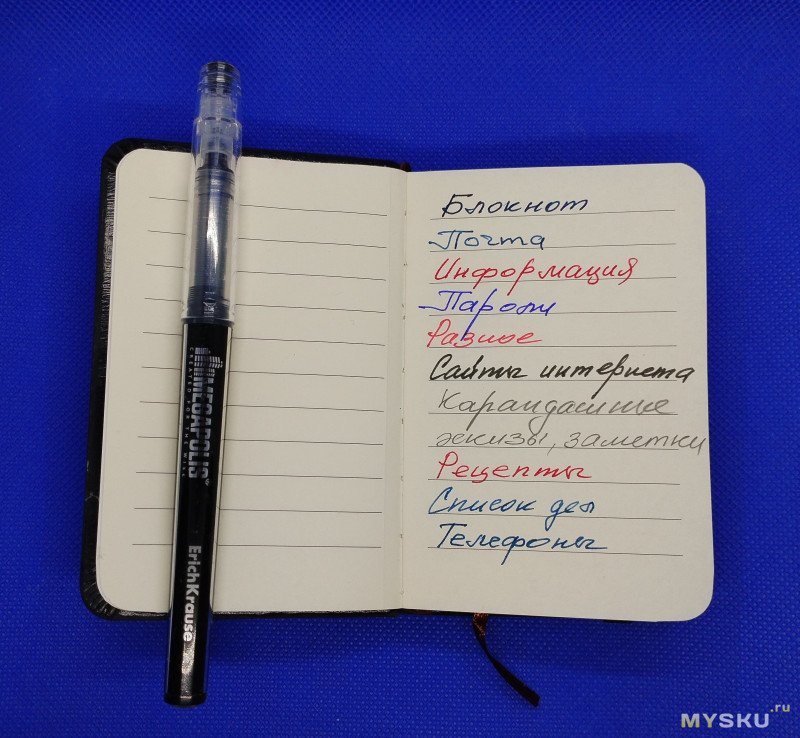 Блокнот
Почта
Информация
Пароли
Разное
Сайты интернета
Карандашные
эскизы, заметки
Рецепты
Список дел
Телефоны
MEGAPOLIS
CREATED FOR THE WILL
ErichKrause
MYSKU.ru